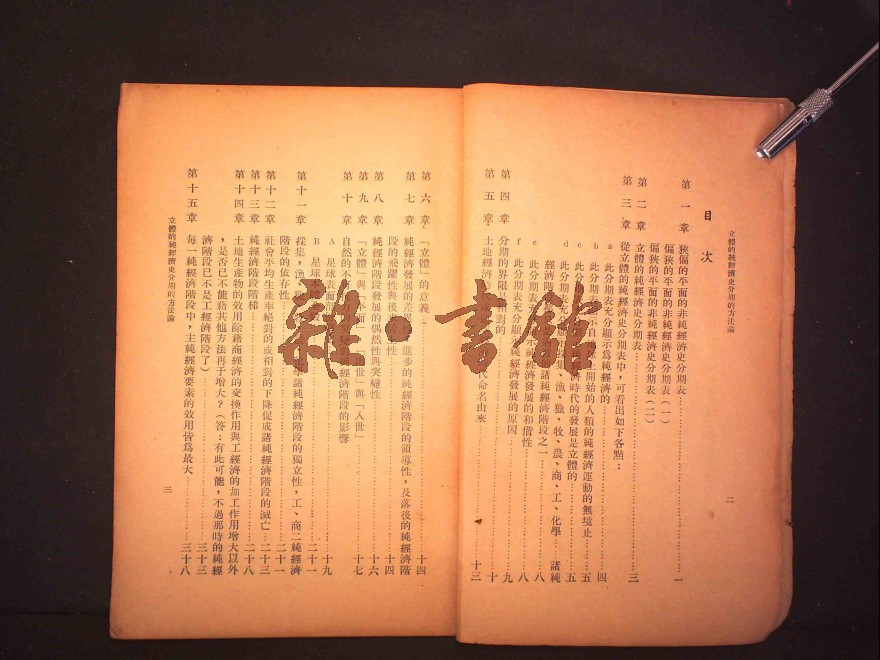 立體的純經濟史分期的方法論
二
目次
第一章 狹偏的平面的非純經濟史分期表……一
偏狹的平面的非純經濟史分期表(一)
偏狹的平面的非純經濟史分期表(二)
第二章 立體的純經濟史分期表……三
第三章 從立體的純經濟史分期表中，可看出如下各點：
a 此分期表充分顯示爲純經濟的……四
b 此分期表 示自 上開始的人類的純經濟運動的無境止……五
c 此分期表充 濟時代的發展是立體的……五
d 此分期表充 集、漁、獵、牧、農、商、工、化學 諸純
經濟階 諸純經濟階段之一……八
e 此分期表充分顯 純經濟發展的和偕性……八
f 此分期表充分顯示 經濟發展的原因……八
第四章 分期的界限 相對的……九
第五章 土地經濟 ……十
代命名由來……十三
第六章 「立體」的意義……十四
第七章 純經濟發展的差 進步的純經濟階段的領導性，及落後的純經濟階
段的飛躍性與後 性……十四
第八章 純經濟階段發展的偶然性與突變性……十六
第九章 「立體」與「平面」 世」與「入世」……十七
第十章 自然的不 經濟階段的影響
A 星球表面的 ……十九
B 星球不 ……二十一
第十一章 採集，漁， 學諸純經濟階段的獨立性，工、商二純經濟
階段的依存性……二十一
第十二章 社會平均生產率絕對的或相對的下降促成諸純經濟階段的滅亡……二十三
第十三章 純經濟階段階梯……二十八
第十四章 土地生產物的效用除藉商經濟的交換作用與工經濟的加工作用增大以外
，是否已不能藉其他方法再于增大？(答：有此可能，不過那時的純經
濟階段已不是工經濟階段了)……三十三
第十五章 每一純經濟階段中，主純經濟要素的效用皆爲最大……三十八
立體的純經濟史分期的方法論
三
雜·書館